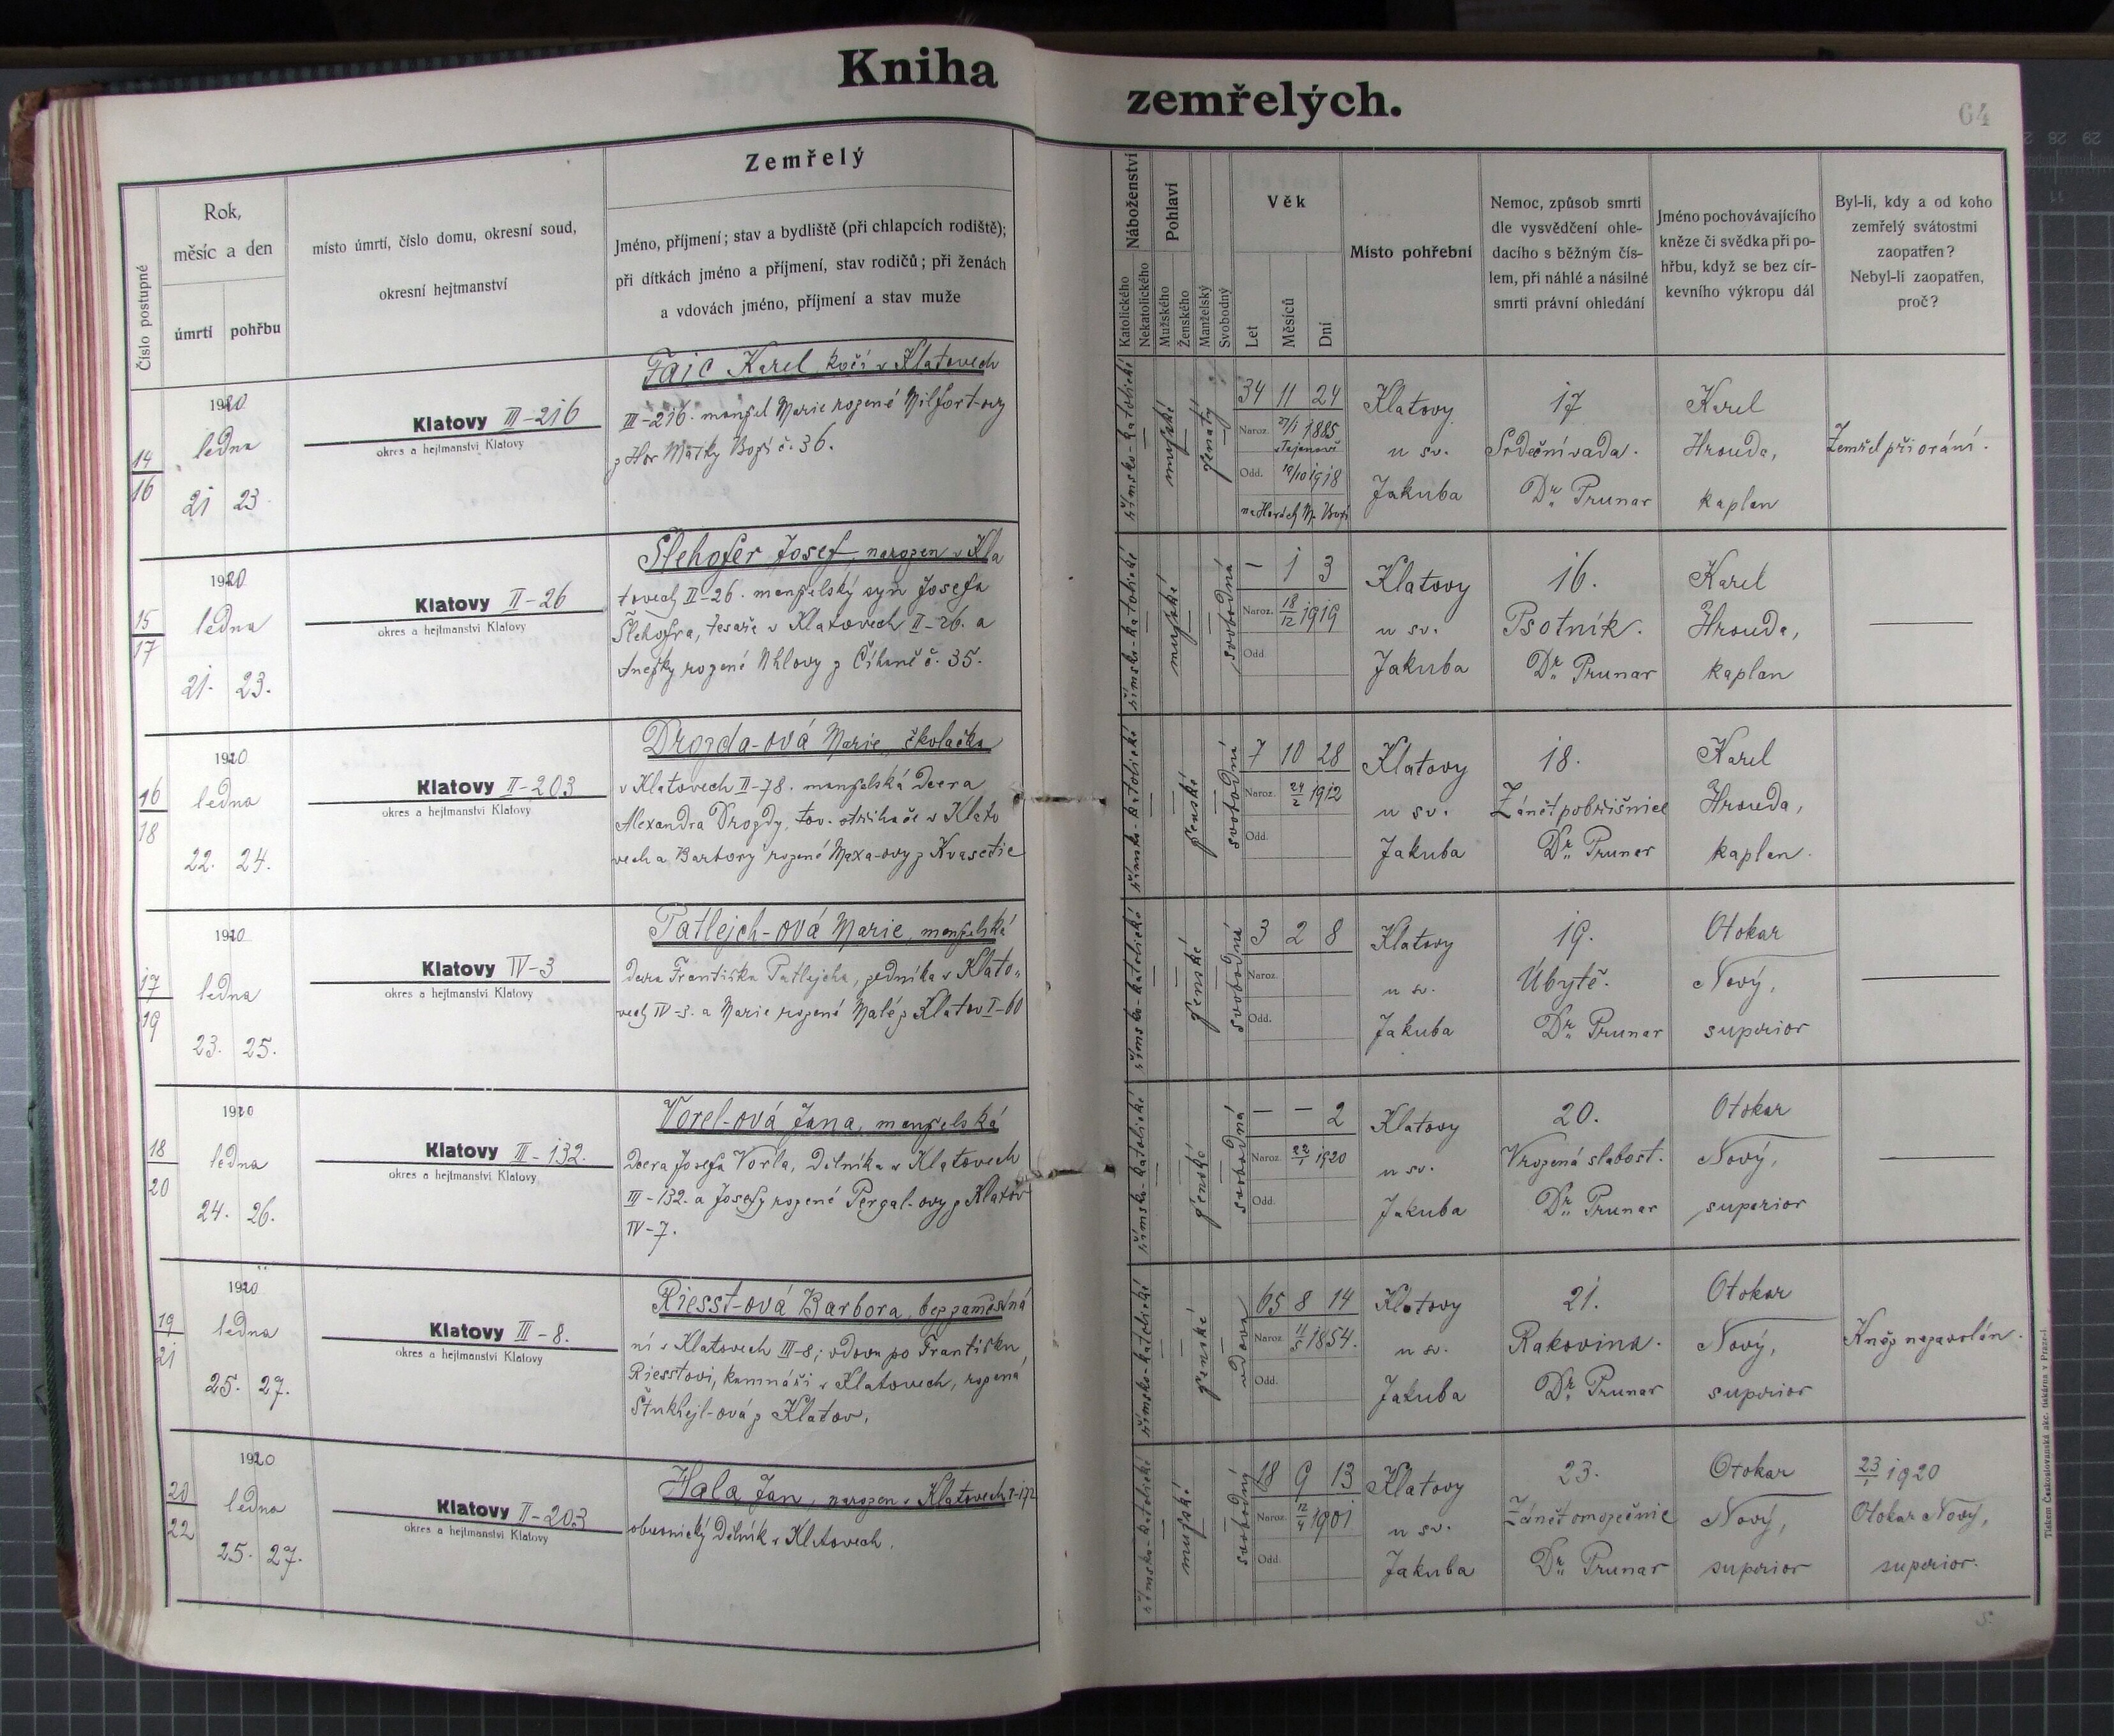 Kniha zemřelých.
64
Číslo postupné
Rok,
měsíc a den
úmrtí
pohřbu
místo úmrtí, číslo domu, okresní soud,
okresní hejtmanství
Zemřelý
Jméno, příjmení; stav a bydliště (při chlapcích rodiště);
při dítkách jméno a příjmení, stav rodičů; při ženách
a vdovách jméno, příjmení a stav muže
Náboženství
Katolického
Nekatolického
Pohlaví
Mužského
Ženského
Manželský
Svobodný
Věk
Let
Měsíců
Dní
Místo pohřební
Nemoc, způsob smrti
dle vysvědčení ohle-
dacího s běžným čís-
lem, při náhlé a násilné
smrti právní ohledání
Jméno pochovávajícího
kněze či svědka při po-
hřbu, když se bez cír-
kevního výkropu dál
Byl-li, kdy a od koho
zemřelý svátostmi
zaopatřen?
Nebyl-li zaopatřen,
proč?
14
16
1920
ledna
21 23
Klatovy III-216
okres a hejtmanství Klatovy
Fajc Karel, kočí v Klatovech
III-216. manžel Marie rozené Milfort-ovy
z Hor Matky Boží č. 36.
římsko-katolické
mužské
ženatý
34 11 24
Naroz. 27/1 1885
Odd. 19/10 1918
na Horách M. Boží
Klatovy
u sv.
Jakuba
17
Srdeční vada.
Dr. Prunar
Karel
Hrouda,
kaplan
Zemřel při orání.
15
17
1920
ledna
21. 23.
Klatovy II-26
okres a hejtmanství Klatovy
Šlehofer Josef, narozen v Kla
tovech II-26. manželský syn Josefa
Šlehofra, tesaře v Klatovech II-26. a
Anežky rozené Uhlovy z Číhaně č. 35.
římsko-katolické
mužské
svobodná
— 1 3
Naroz. 18/12 1919
Odd.
Klatovy
u sv.
Jakuba
16.
Psotník.
Dr. Prunar
Karel
Hrouda,
kaplan
16
18
1920
ledna
22. 24.
Klatovy II-203
okres a hejtmanství Klatovy
Drozda-ová Marie, školačka
v Klatovech II-78. manželská dcera
Alexandra Drozdy, tov. střihače v Klato
vech a Barbory rozené Maxa-ovy z Kvasetic
římsko-katolické
ženské
svobodná
7 10 28
Naroz. 24/2 1912
Odd.
Klatovy
u sv.
Jakuba
18.
Zánět pobřišnice
Dr. Prunar
Karel
Hrouda,
kaplan.
17
19
1920
ledna
23. 25.
Klatovy IV-3
okres a hejtmanství Klatovy
Patlejch-ová Marie, manželská
dcera Františka Patlejcha, zedníka v Klato-
vech IV-3. a Marie rozené Malé z Klatov I-60
římsko-katolické
ženské
svobodná
3 2 8
Naroz.
Odd.
Klatovy
u sv.
Jakuba
19.
Úbytě.
Dr. Prunar
Otokar
Nový,
superior
18
20
1920
ledna
24. 26.
Klatovy III-132.
okres a hejtmanství Klatovy
Vorel-ová Jana, manželská
dcera Josefa Vorla, dělníka v Klatovech
III-132. a Josefy rozené Pergal-ovy z Klatov
IV-7.
římsko-katolické
ženské
svobodná
— — 2
Naroz. 22/1 1920
Odd.
Klatovy
u sv.
Jakuba
20.
Vrozená slabost.
Dr. Prunar
Otokar
Nový,
superior
19
21
1920
ledna
25. 27.
Klatovy III-8.
okres a hejtmanství Klatovy
Riesst-ová Barbora, bez zaměstná
ní v Klatovech III-8; vdova po Františku
Riesstovi, kamnáři v Klatovech, rozená
Štukhejl-ová z Klatov.
římsko-katolické
ženské
vdova
65 8 14
Naroz. 11/5 1854.
Odd.
Klatovy
u sv.
Jakuba
21.
Rakovina.
Dr. Prunar
Otokar
Nový,
superior
Kněz nezavolán.
20
22
1920
ledna
25. 27.
Klatovy II-203
okres a hejtmanství Klatovy
Hala Jan, narozen v Klatovech I-172
obuvnický dělník v Klatovech.
římsko-katolické
mužské
svobodný
18 9 13
Naroz. 12/4 1901
Odd.
Klatovy
u sv.
Jakuba
23.
Zánět omozečnic
Dr. Prunar
Otokar
Nový,
superior
23/1 1920
Otokar Nový,
superior.
Tiskem Českoslovanská akc. tiskárna v Praze-I